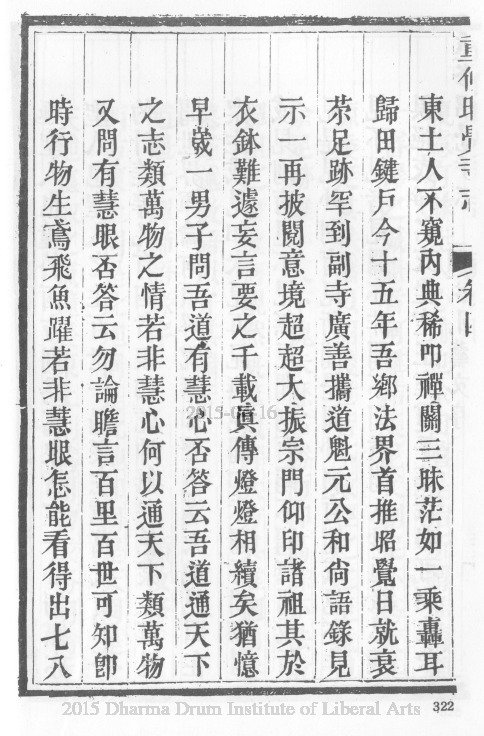 重修昭覺寺志
卷四
東土人不窺內典稀叩禪關三昧茫如一乘轟耳
歸田鍵戶今十五年吾鄉法界首推昭覺日就衰
苶足跡罕到副寺廣善攜道魁元公和尚語錄見
示一再披閱意境超超大振宗門仰印諸祖其於
衣鉢難遽妄言要之千載眞傳燈燈相續矣猶憶
早歲一男子問吾道有慧心否答云吾道通天下
之志類萬物之情若非慧心何以通天下類萬物
又問有慧眼否答云勿論瞻言百里百世可知卽
時行物生鳶飛魚躍若非慧眼怎能看得出七八
322
2015 Dharma Drum Institute of Liberal Arts